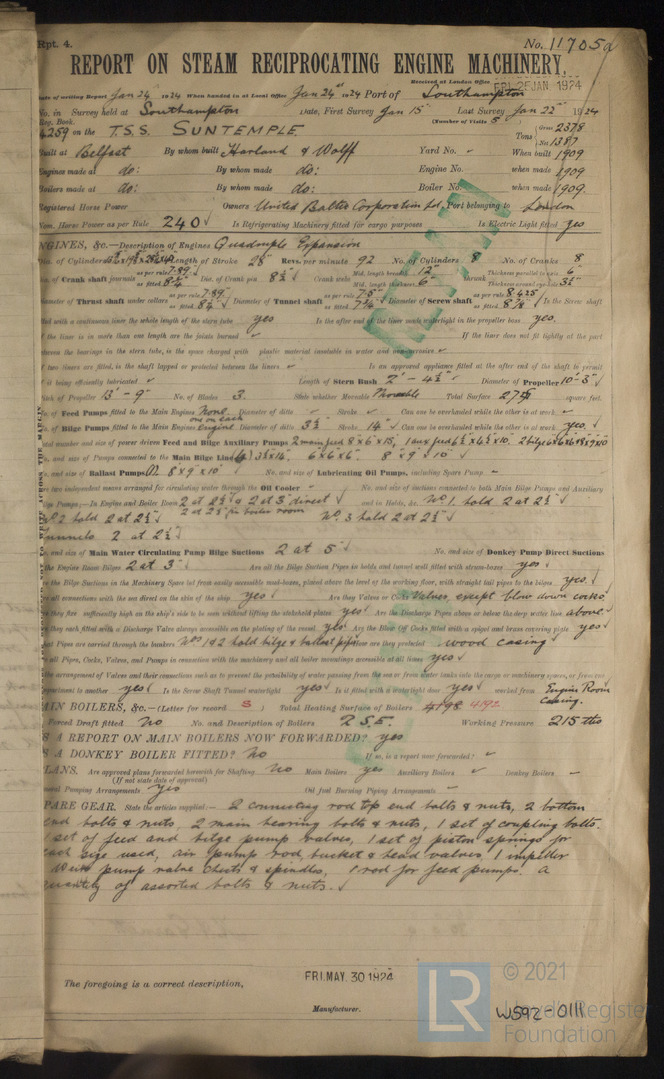 Rpt. 4.
No. 11705a
REPORT ON STEAM RECIPROCATING ENGINE MACHINERY.
Received at London Office FRI. 25 JAN 1924
Date of writing Report Jan 24th 1924 When handed in at Local Office Jan 24th 1924 Port of Southampton
No. in Survey held at Southampton Date, First Survey Jan 15th Last Survey Jan 22nd 1924
Reg. Book. (Number of Visits 5
4259 on the T.S.S. SUNTEMPLE Tons Gross 2378 Net 1387
Built at Belfast By whom built Harland & Wolff Yard No. When built 1909
Engines made at do: By whom made do: Engine No. when made 1909
Boilers made at do: By whom made do: Boiler No. when made 1909
Registered Horse Power Owners United Baltic Corporation Ltd. Port belonging to London
Nom. Horse Power as per Rule 240 Is Refrigerating Machinery fitted for cargo purposes Is Electric Light fitted yes
ENGINES, &c.—Description of Engines Quadruple Expansion
No. of Cylinders Length of Stroke Revs. per minute 92 No. of Cylinders 8 No. of Cranks 8
Dia. of Crank shaft journals as per rule 7.89 as fitted 8¼ Dia. of Crank pin 8½ Crank webs Mid. length breadth 12" Mid. length thickness 6" shrunk Thickness parallel to axis 6" Thickness around eye
Diameter of Thrust shaft under collars as per rule 7.89 as fitted 8¼ Diameter of Tunnel shaft as per rule 7.5 as fitted Diameter of Screw shaft as per rule 8.425 as fitted 8⅞ Is the Screw shaft
fitted with a continuous liner the whole length of the stern tube yes Is the after end of the liner made watertight in the propeller boss yes.
If the liner is in more than one length are the joints burned If the liner does not fit tightly at the part
between the bearings in the stern tube, is the space charged with plastic material insoluble in water and non-corrosive
If two liners are fitted, is the shaft lapped or protected between the liners Is an approved appliance fitted at the after end of the shaft to permit
of it being efficiently lubricated Length of Stern Bush 2' - 4½" Diameter of Propeller 10'-3"
Pitch of Propeller 13' - 9" No. of Blades 3. State whether Moveable Moveable Total Surface square feet.
No. of Feed Pumps fitted to the Main Engines None Diameter of ditto Stroke Can one be overhauled while the other is at work
No. of Bilge Pumps fitted to the Main Engines one on each Engine Diameter of ditto 3½ Stroke 14" Can one be overhauled while the other is at work yes.
Total number and size of power driven Feed and Bilge Auxiliary Pumps 2 main feed 8 x 6 x 15,
No. and size of Pumps connected to the Main Bilge Line 6"x6"x6" 8"x9"x10"
No. and size of Ballast Pumps (1) 8 x 9 x 10" No. and size of Lubricating Oil Pumps, including Spare Pump -
Are two independent means arranged for circulating water through the Oil Cooler No. and size of suctions connected to both Main Bilge Pumps and Auxiliary
Bilge Pumps;—In Engine and Boiler Room 2 at 2½" & 2 at 3" direct and in Holds, &c. No 1. hold 2 at 2½"
2 at 2½" in boiler room
No 2 hold 2 at 2½" No. 3 hold 2 at 2½"
Tunnels 2 at 2½"
No. and size of Main Water Circulating Pump Bilge Suctions 2 at 5" No. and size of Donkey Pump Direct Suctions
to the Engine Room Bilges 2 at 3" Are all the Bilge Suction Pipes in holds and tunnel well fitted with strum-boxes yes
Are the Bilge Suctions in the Machinery Space led from easily accessible mud-boxes, placed above the level of the working floor, with straight tail pipes to the bilges yes.
Are all connections with the sea direct on the skin of the ship yes Are they Valves or Cocks Valves, except blow down cocks
Are they fixed sufficiently high on the ship's side to be seen without lifting the stokehold plates yes Are the Discharge Pipes above or below the deep water line above
Are they each fitted with a Discharge Valve always accessible on the plating of the vessel yes Are the Blow Off Cocks fitted with a spigot and brass covering plate yes
What Pipes are carried through the bunkers Nos 1 & 2 hold bilge & ballast pipes How are they protected wood casing
Are all Pipes, Cocks, Valves, and Pumps in connection with the machinery and all boiler mountings accessible at all times yes
Is the arrangement of Valves and their connections such as to prevent the possibility of water passing from the sea or from water tanks into the cargo or machinery spaces, or from one
compartment to another yes Is the Screw Shaft Tunnel watertight yes Is it fitted with a watertight door yes worked from Engine Room Casing.
MAIN BOILERS, &c.—(Letter for record S) Total Heating Surface of Boilers 4198 4192
Is Forced Draft fitted No No. and Description of Boilers 2 S.E. Working Pressure 215 lbs
IS A REPORT ON MAIN BOILERS NOW FORWARDED? yes
IS A DONKEY BOILER FITTED? No If so, is a report now forwarded?
PLANS. Are approved plans forwarded herewith for Shafting No Main Boilers yes Auxiliary Boilers Donkey Boilers -
(If not state date of approval)
General Pumping Arrangements yes Oil fuel Burning Piping Arrangements -
SPARE GEAR. State the articles supplied:— 2 connecting rod top end bolts & nuts, 2 bottom
end bolts & nuts, 2 main bearing bolts & nuts, 1 set of coupling bolts.
1 set of feed and bilge pump valves, 1 set of piston springs for
each size used, air pump rod, bucket & head valves, 1 impeller
pump valve chests & spindles, 1 rod for feed pumps. A
quantity of assorted bolts & nuts.
The foregoing is a correct description,
FRI. MAY. 30 1924
Manufacturer.
LR
© 2021
Lloyd's Register
Foundation
W592-0111